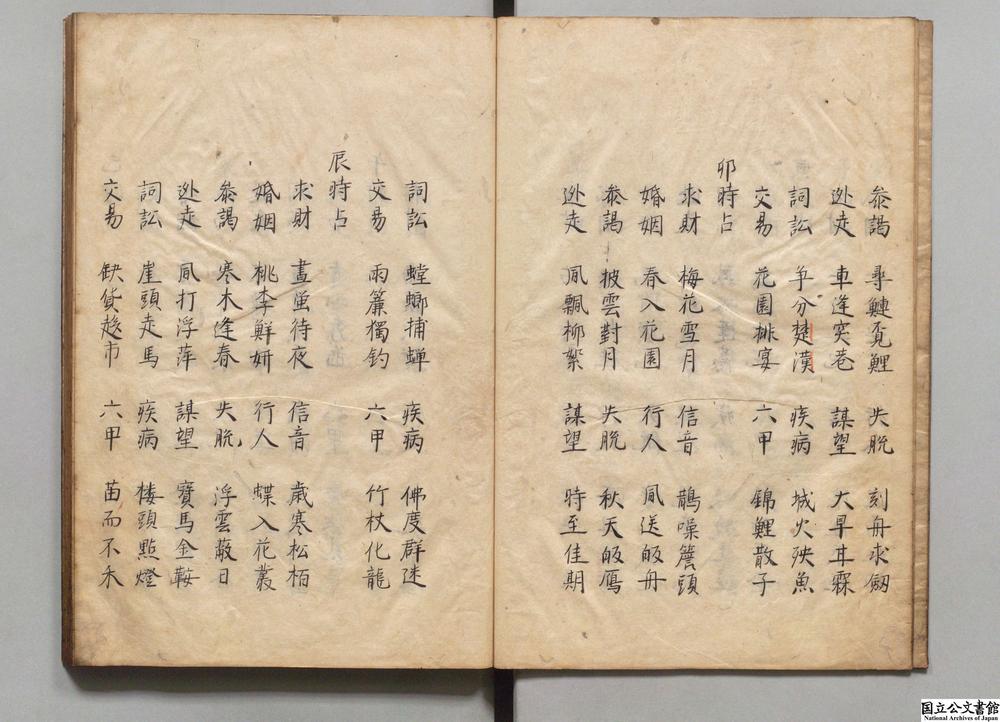 叅謁 尋鰱覔鯉 失脫 刻舟求劔
迯走 車逢窄巷 謀望 大旱甘霖
詞訟 争分楚漢 疾病 城火殃魚
交易 花園排宴 六甲 錦鯉散子
卯時占
求財 梅花雪月 信音 鵲噪簷頭
婚姻 春入花園 行人 風送皈舟
叅謁 披雲對月 失脫 秋天皈鴈
迯走 風飄柳絮 謀望 時至佳期
詞訟 螳螂捕蟬 疾病 佛度群迷
交易 雨簾獨釣 六甲 竹杖化龍
辰時占
求財 晝蛍待夜 信音 歳寒松栢
婚姻 桃李鮮妍 行人 蝶入花叢
叅謁 寒木逢春 失脫 浮雲蔽日
迯走 風打浮萍 謀望 寶馬金鞍
詞訟 崖頭走馬 疾病 楼頭點燈
交易 缺貨趍市 六甲 苗而不禾
国立公文書館
National Archives of Japan